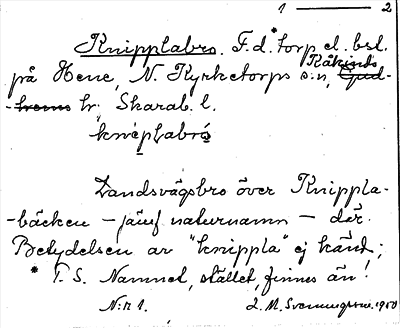 1 — 2
Knipplabro. F.d.* torp el. bsl.
på Hene, N. Kyrketorps s:n, Kåkinds
hr. Skarab. l.
knéplabrò
Landsvägsbro över Knippla-
-bäcken – jämf naturnamn – där.
Betydelsen av "knippla" ej känd;
* T. S. Namnet, stället, finnes än!
N:r 1. L. M. Svenungsson. 1950